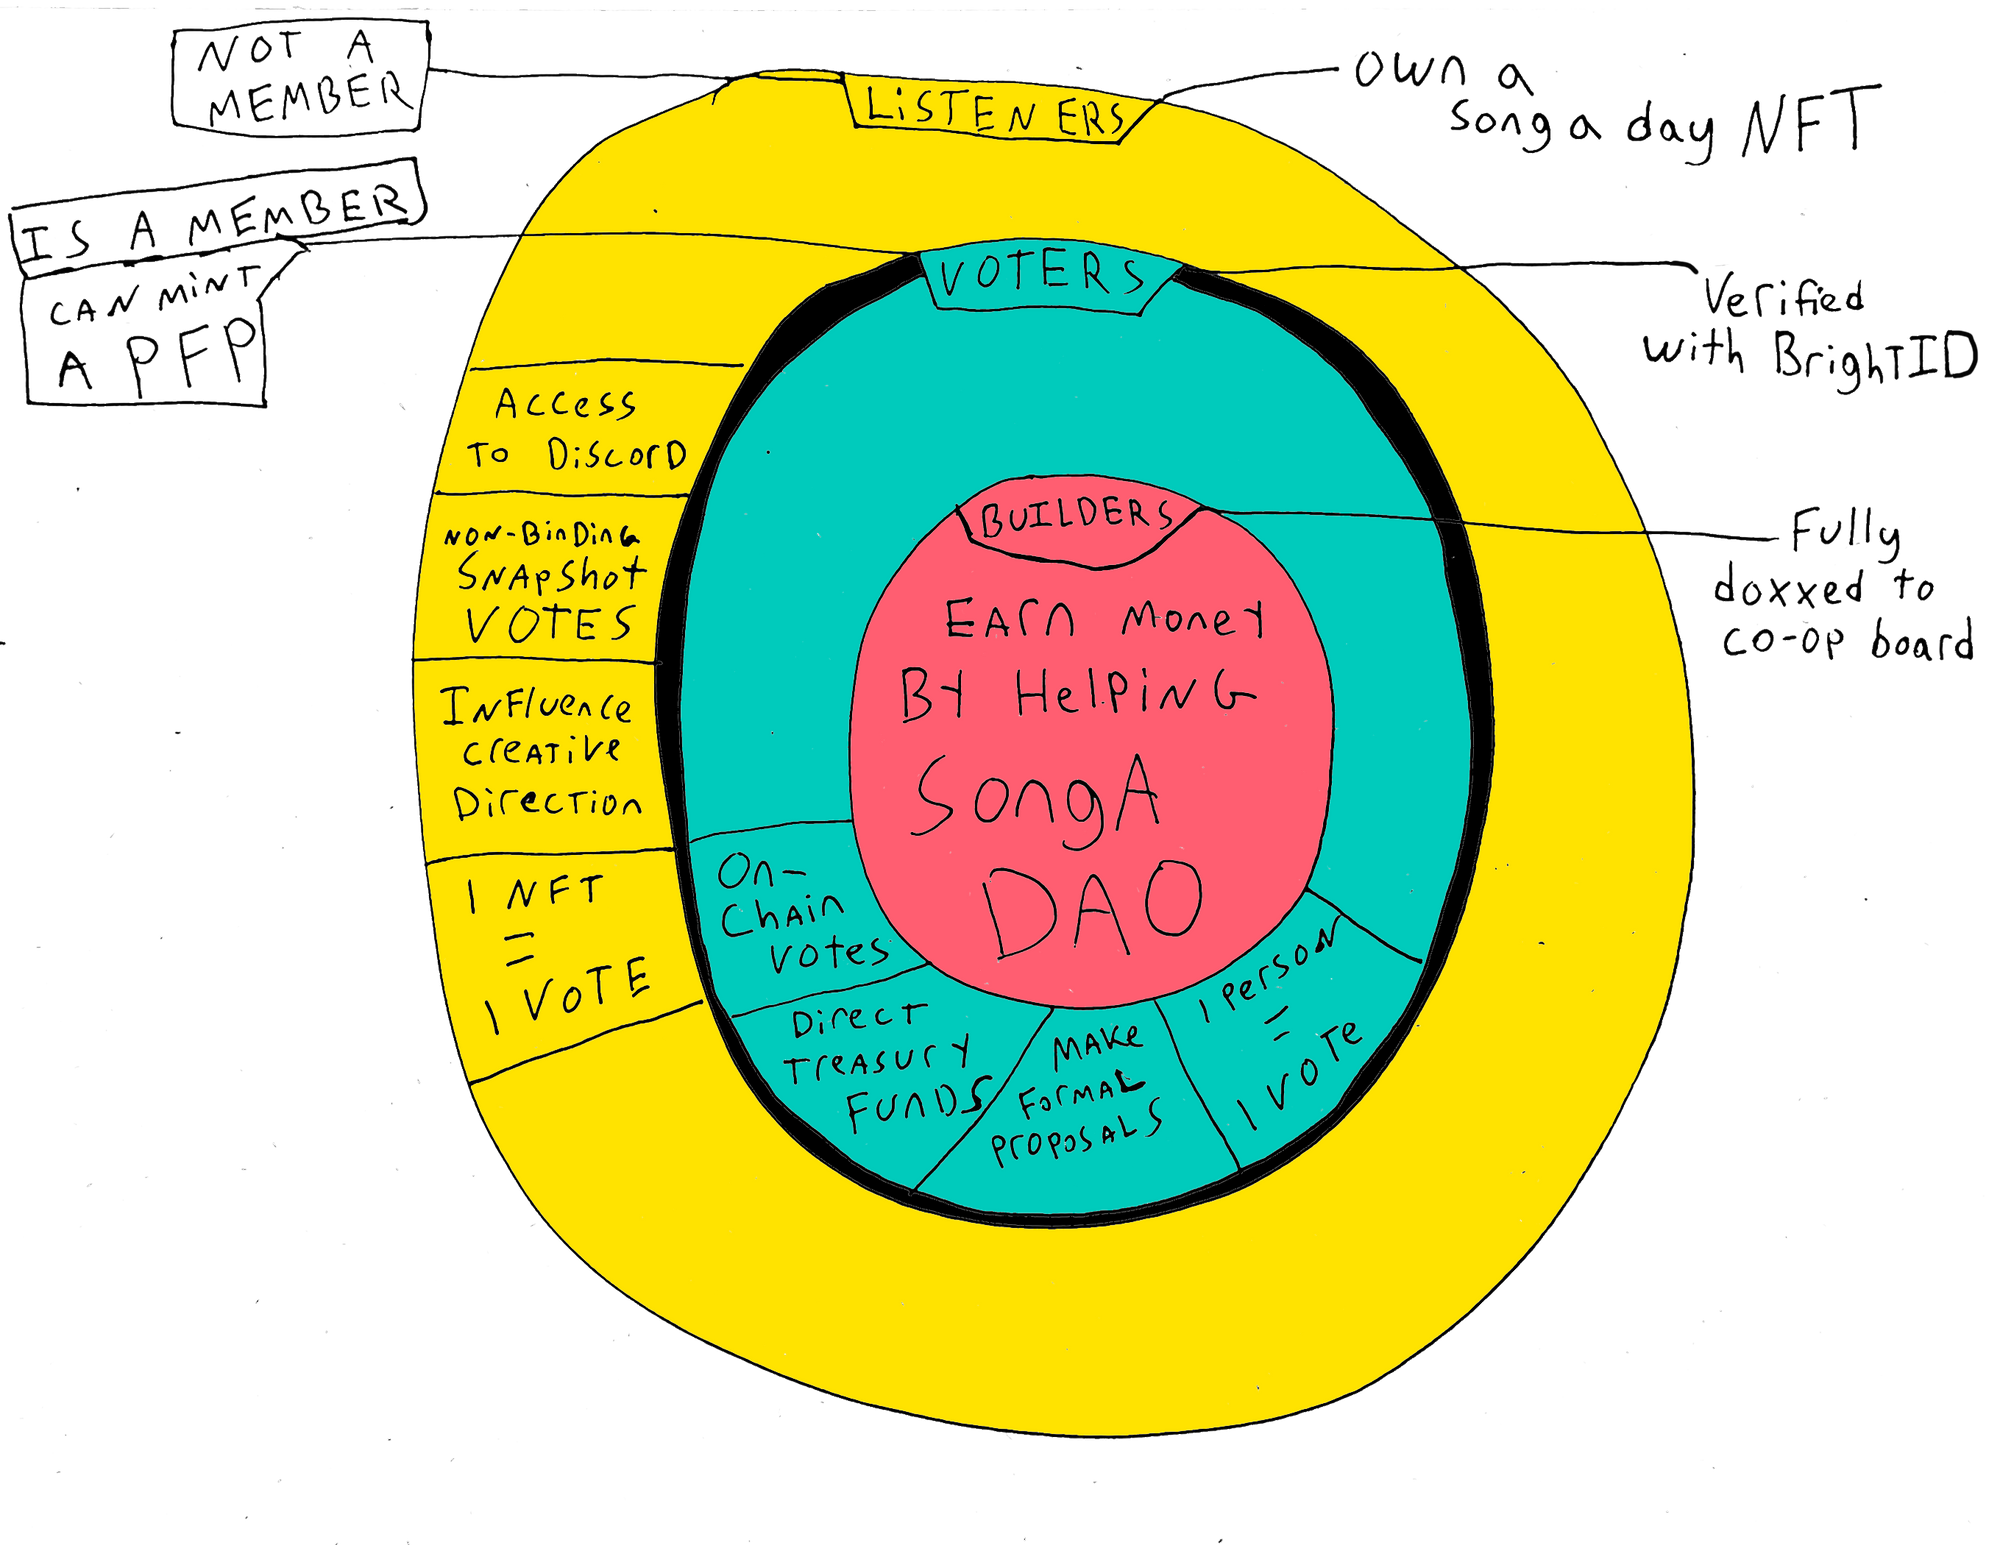 NOT A
MEMBER
LiSTENERS
Own a
Song a day NFT
IS A MEMBER
CAN MiNT
A PFP
VOTERS
Verified
with BrighTID
Access
To DiscorD
NON-BinDinG
SNApShot
VOTES
InFluence
CreATive
DirecTion
1 NFT
=
1 VOTE
BUILDERS
Fully
doxxed to
co-op board
EArn Money
BY HelPiNG
SongA
DAO
On-
ChAin
Votes
Direct
TreASury
FUNDS
MAKe
ForMAL
ProposALS
1 PersoN
=
1 VOTe